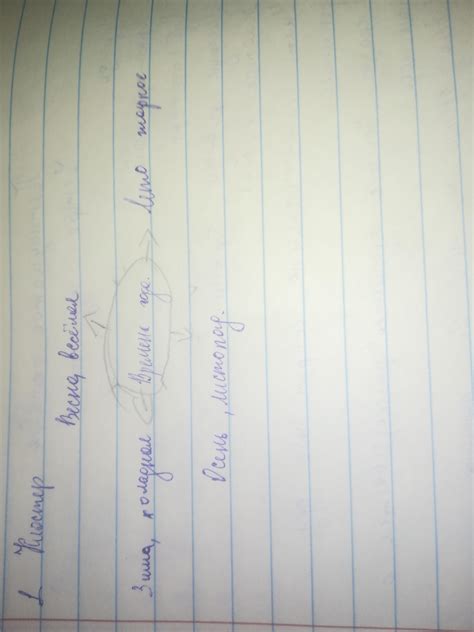 1 Кластер
Весна, весёлая
Зима, холадная Времена года. Лето жаркое
Осень, листопад.